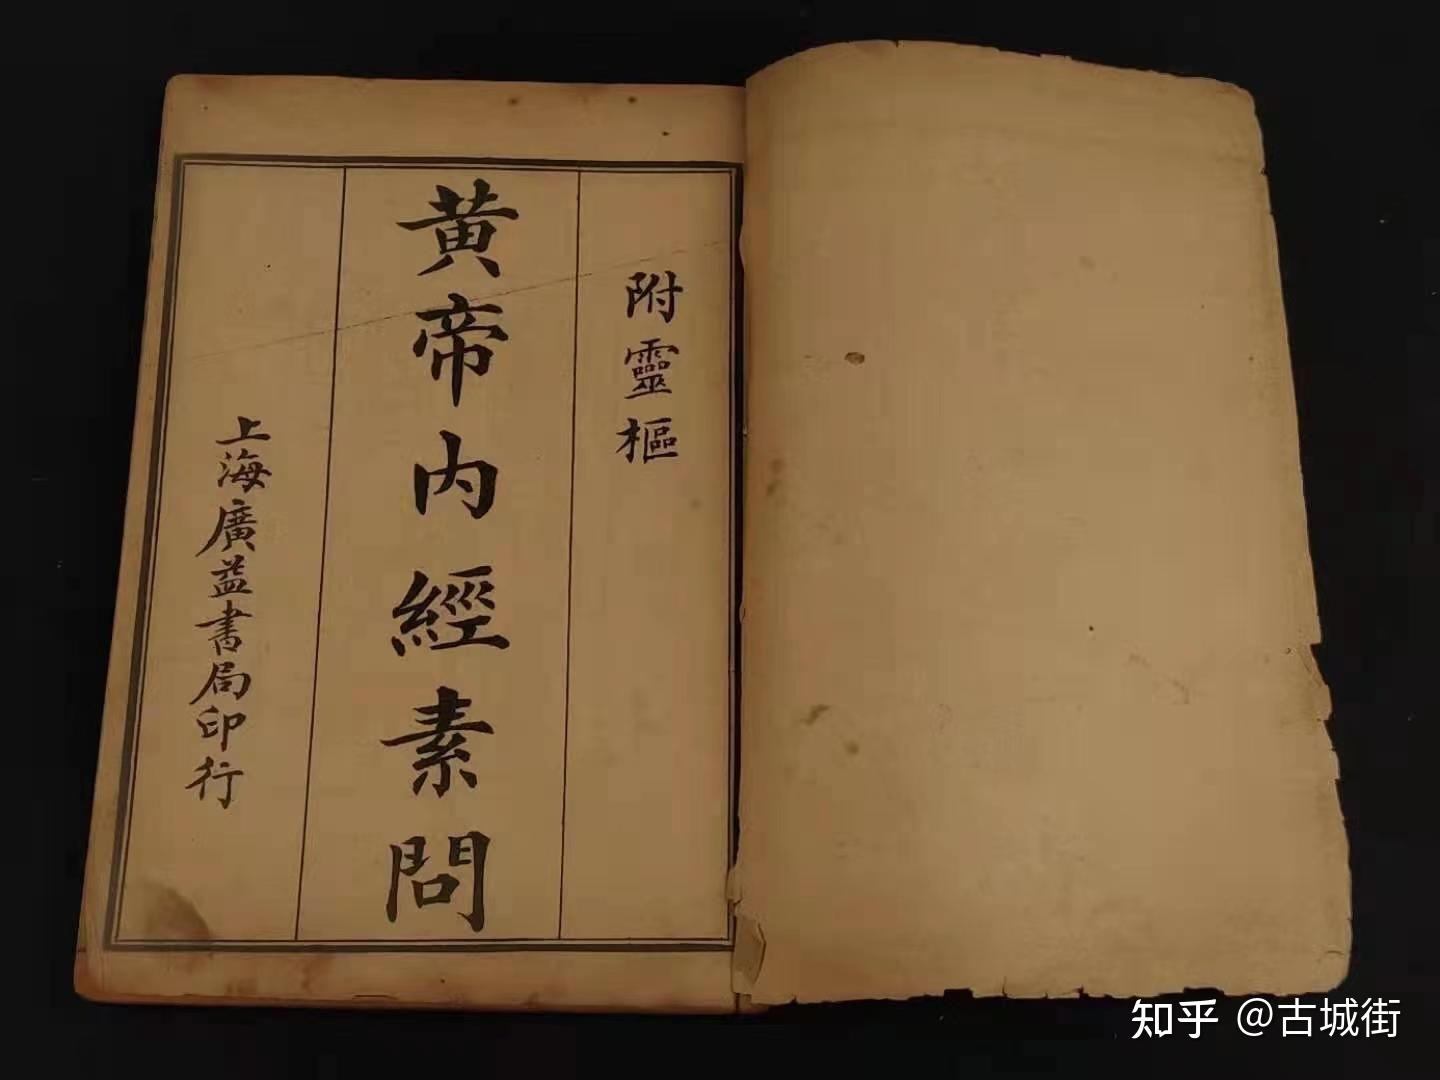 附靈樞
黃帝內經素問
上海廣益書局印行
知乎 @古城街